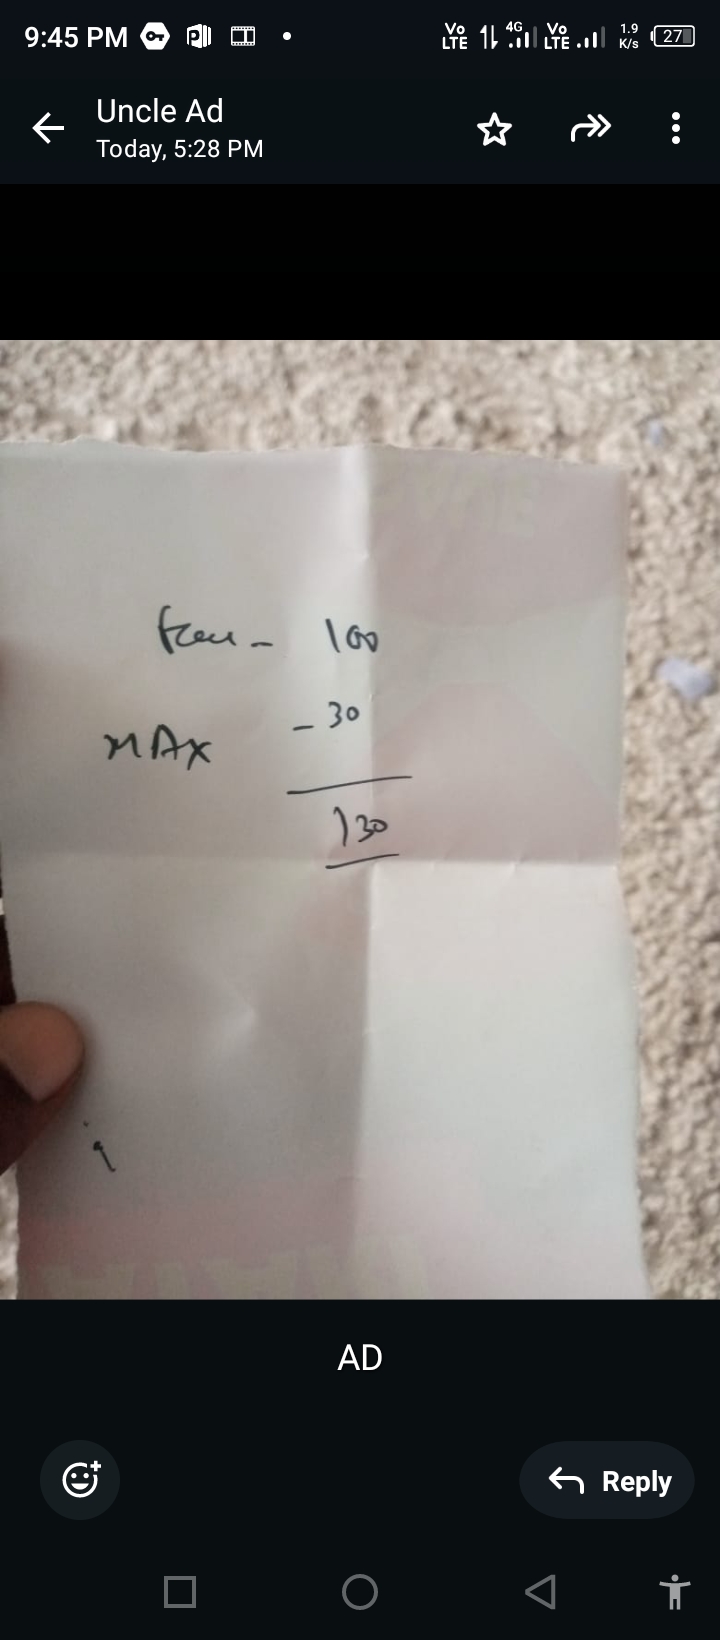 9:45 PM
Vo LTE 4G Vo LTE 1.9 K/s 27
Uncle Ad
Today, 5:28 PM
- 100
MAX - 30
130
AD
Reply